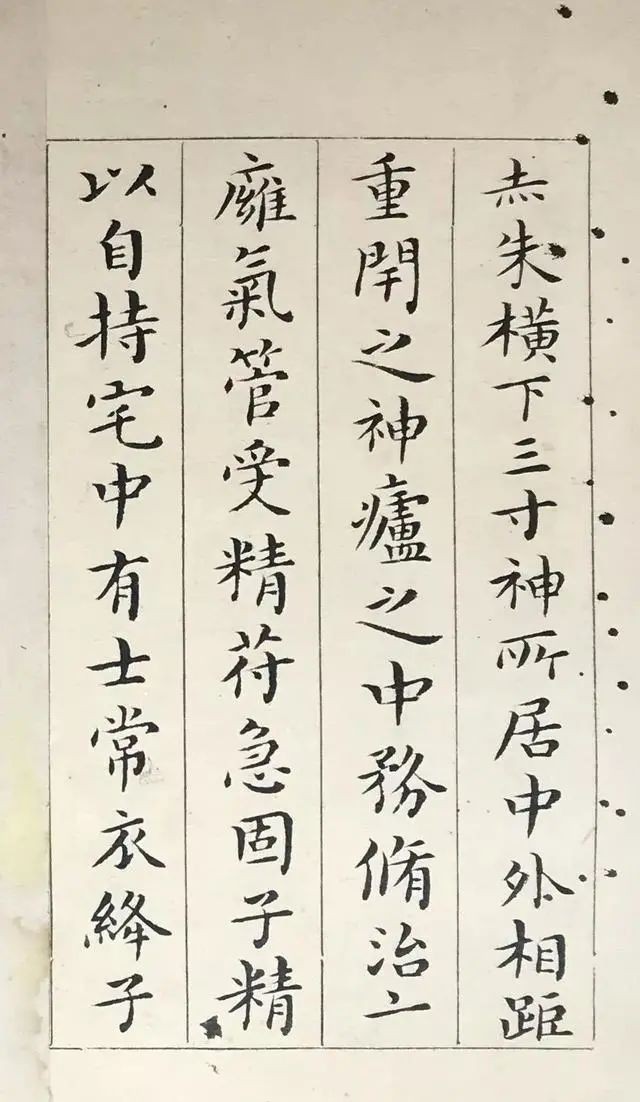 赤朱橫下三寸神所居中外相距
重閇之神廬之中務脩治二
癕氣管受精苻急固子精
以自持宅中有士常衣絳子